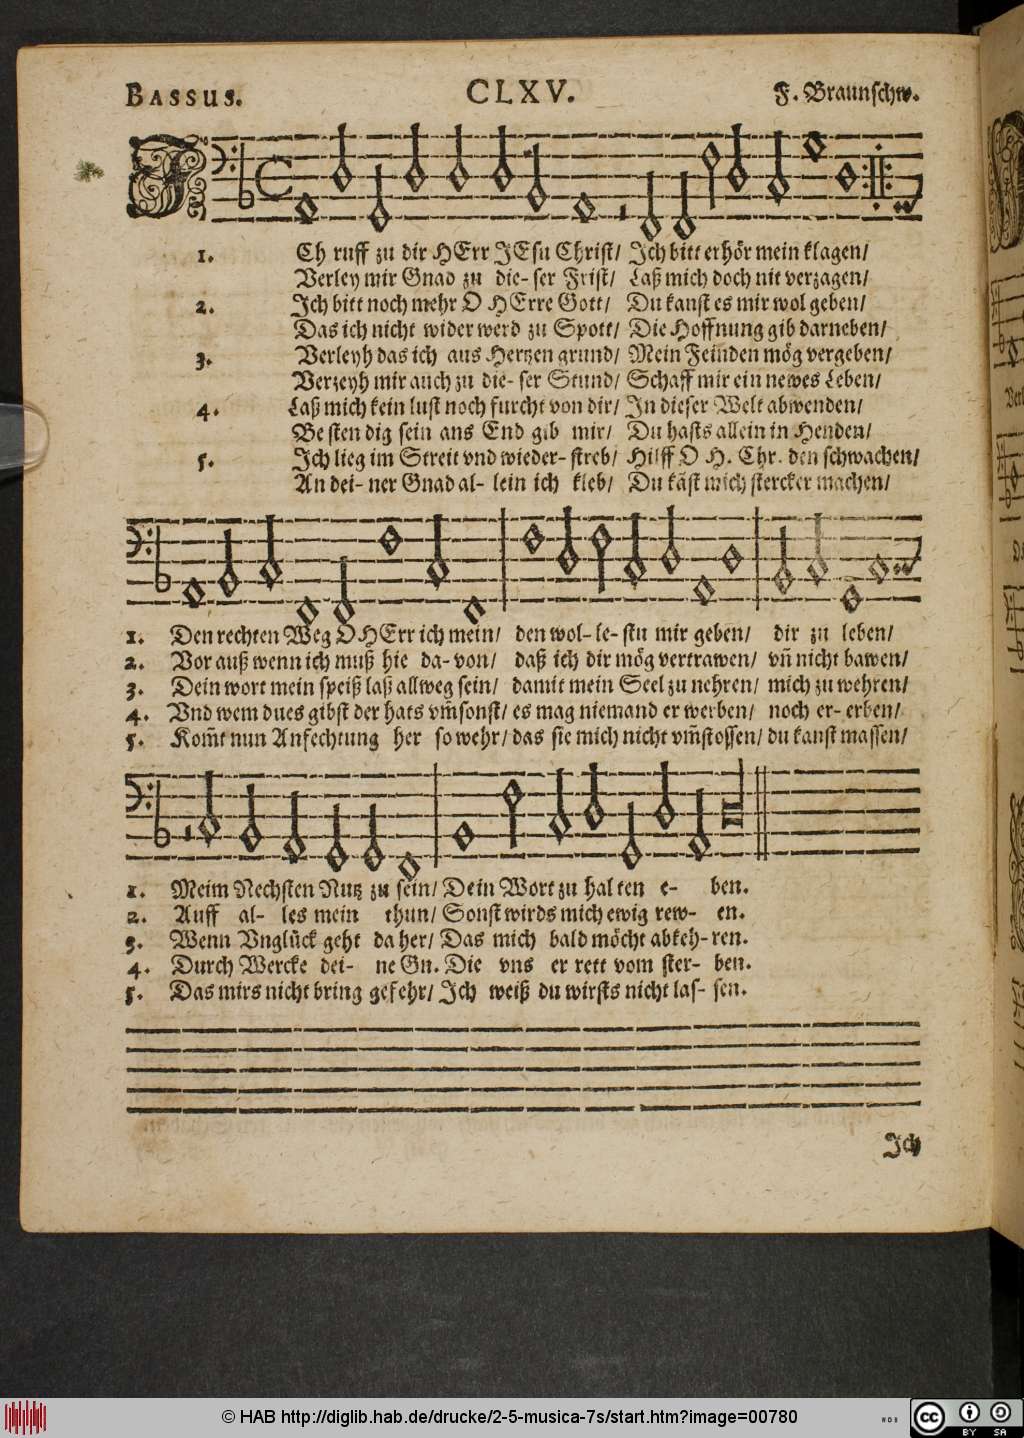 BASSUS. CLXV. F. Braunschw.
1. ICh ruff zu dir HErr JEsu Christ/ Ich bitt erhör mein klagen/
Verley mir Gnad zu die- ser Frist/ Laß mich doch nit verzagen/
2. Ich bitt noch mehr O HErre Gott/ Du kanst es mir wol geben/
Das ich nicht wider werd zu Spott/ Die Hoffnung gib darneben/
3. Verleyh das ich aus Hertzen grund/ Mein Feinden mög vergeben/
Verzeyh mir auch zu die- ser Stund/ Schaff mir ein newes Leben/
4. Laß mich kein lust noch furcht von dir/ In dieser Welt abwenden/
Be sten dig sein ans End gib mir/ Du hasts allein in Henden/
5. Ich lieg im Streit vnd wieder- streb/ Hilff O H. Chr. den schwachen/
An dei- ner Gnad al- lein ich kleb/ Du käst mich stercker machen/
1. Den rechten Weg O HErr ich mein/ den wol- le- stu mir geben/ dir zu leben/
2. Vor auß wenn ich muß hie da- von/ daß ich dir mög vertrawen/ vñ nicht bawen/
3. Dein wort mein speiß laß allweg sein/ damit mein Seel zu nehren/ mich zu wehren/
4. Vnd wem dues gibst der hats vm̃sonst/ es mag niemand er werben/ noch er- erben/
5. Kom̃t nun Anfechtung her so wehr/ das sie mich nicht vm̃stossen/ du kanst massen/
1. Meim Nechsten Nutz zu sein/ Dein Wort zu hal ten e- ben.
2. Auff al- les mein thun/ Sonst wirds mich ewig rew- en.
3. Wenn Vnglück geht da her/ Das mich bald möcht abkeh- ren.
4. Durch Wercke dei- ne Gn. Die vns er rett vom ster- ben.
5. Das mirs nicht bring gefehr/ Ich weiß du wirsts nicht las- sen.
Ich
© HAB http://diglib.hab.de/drucke/2-5-musica-7s/start.htm?image=00780
WDB
cc
BY SA